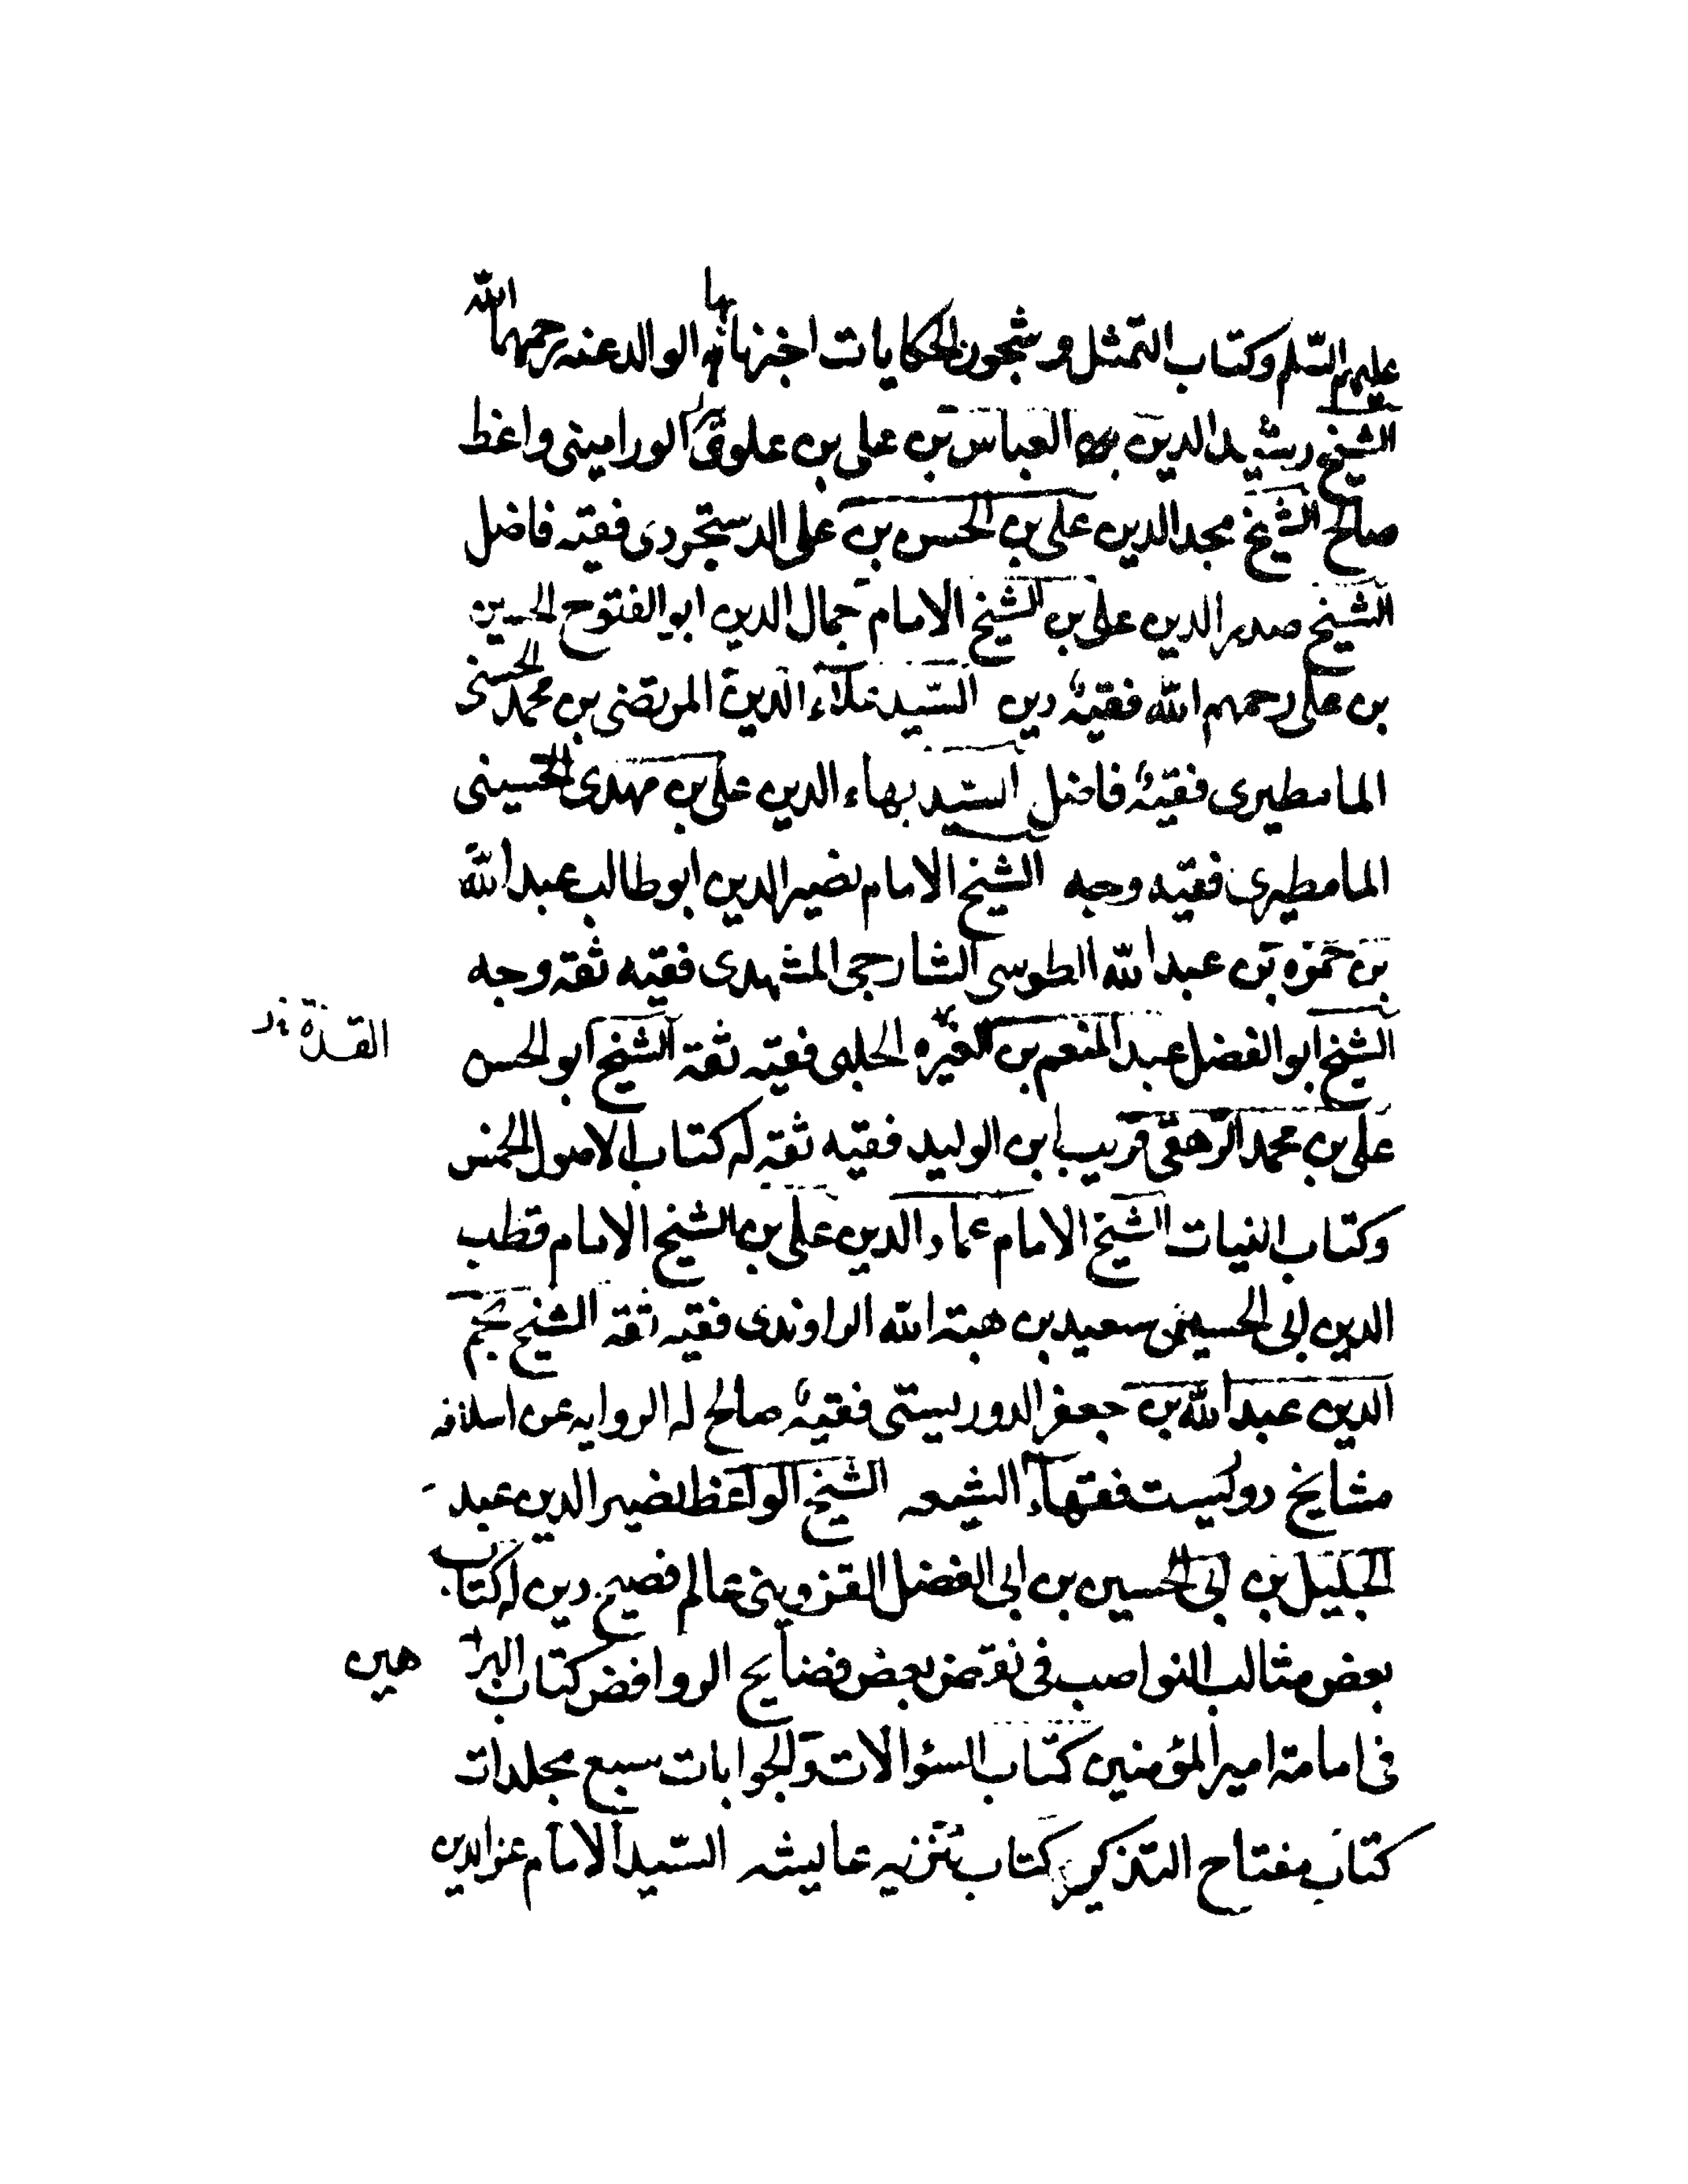 عليهم السلم وكتاب التمثل وشجون الحكايات اخبرنا بها الوالد عنه رحمهما الله
الشيخ رشيد الدين العباس بن على بن علويه الورامينى واعظ
صالح الشيخ مجد الدين على بن الحسن بن على الدستجردى فقيه فاضل
الشيخ صدر الدين على بن الشيخ الامام جمال الدين ابو الفتوح الحسين
بن على رحمهم الله فقيه دين السيد علاء الدين المرتضى بن محمد الحسنى
المامطيرى فقيه فاضل السيد بهاء الدين على بن مهدى الحسينى
المامطيرى فقيه وجه الشيخ الامام نصير الدين ابو طالب عبد الله
بن حمزه بن عبد الله الطوسى الشارحى المشهدى فقيه ثقه وجه
الشيخ ابو الفضل عبد المنعم بن الغيره الحلبى فقيه ثقة الشيخ ابو الحسن
على بن محمد الرهقى قريب ابن الوليد فقيه ثقه له كتاب الاصول الخمس
وكتاب النيات الشيخ الامام عماد الدين على بن الشيخ الامام قطب
الدين ابى الحسين سعيد بن هبة الله الراوندى فقيه ثقة الشيخ نجم
الدين عبد الله بن جعفر الدوريستى فقيه صالح له الروايه عن اسلافه
مشايخ دوريست فقهاء الشيعه الشيخ الواعظ نصير الدين عبد
الجليل بن ابى الحسين بن ابى الفضل القزوينى عالم فصيح دين له كتاب
بعض مثالب النواصب فى نقض بعض فضايح الروافض كتاب البراهين
فى امامة امير المؤمنين كتاب السؤالات والجوابات سبع مجلدات
كتاب مفتاح التذكير كتاب تنزيه عايشه السيد الامام عز الدين